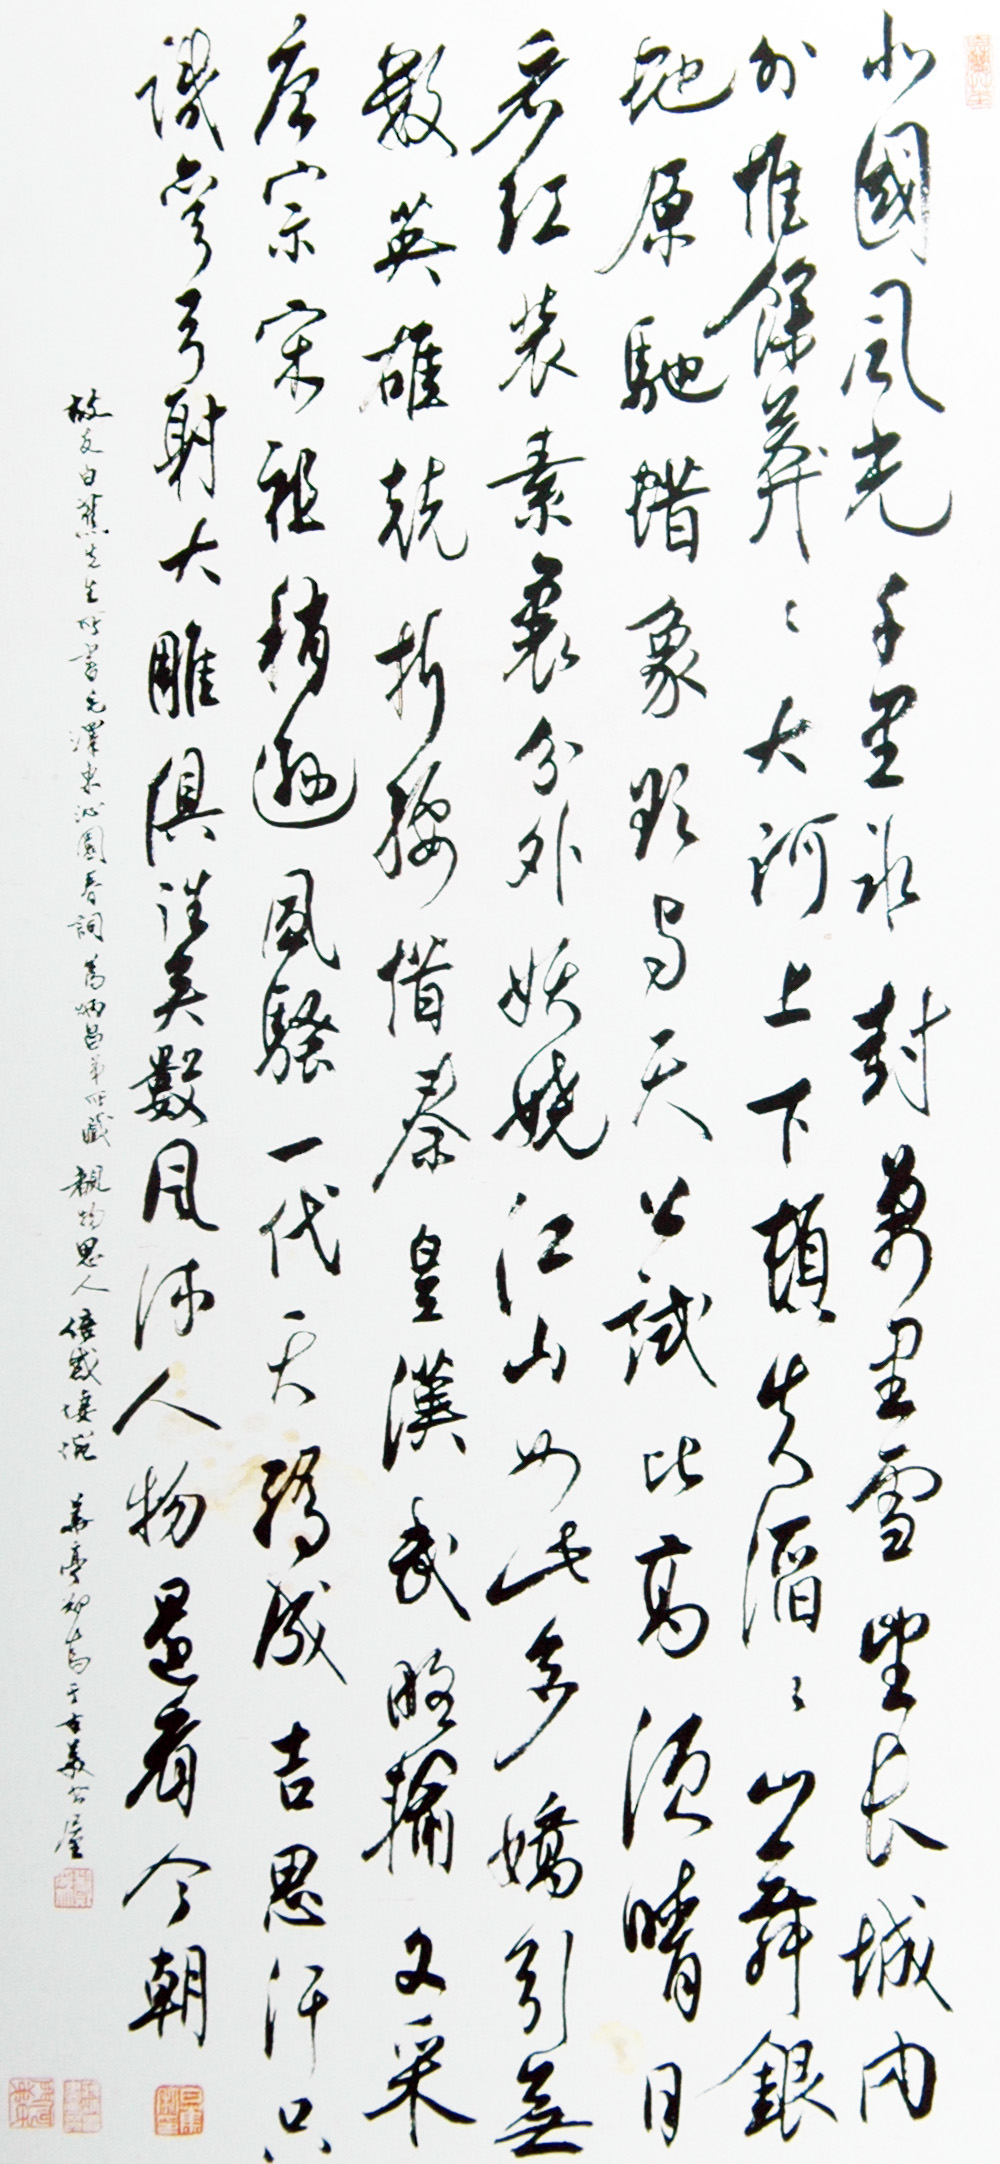 北國風光千里冰封萬里雪望長城內
外惟餘莽〻大河上下頓失滔〻山舞銀
蛇原馳蜡象欲与天公試比高須晴日
看红裝素裹分外妖嬈江山如此多嬌引無
數英雄競折腰惜秦皇漢武略輸文采
唐宗宋祖稍遜風騷一代天驕成吉思汗只
識彎弓射大雕俱往矣數風流人物還看今朝
故友白蕉先生所書毛澤東沁園春詞為炳昌弟所藏覩物思人倍感悽惋華亭鄭為于古美公屋